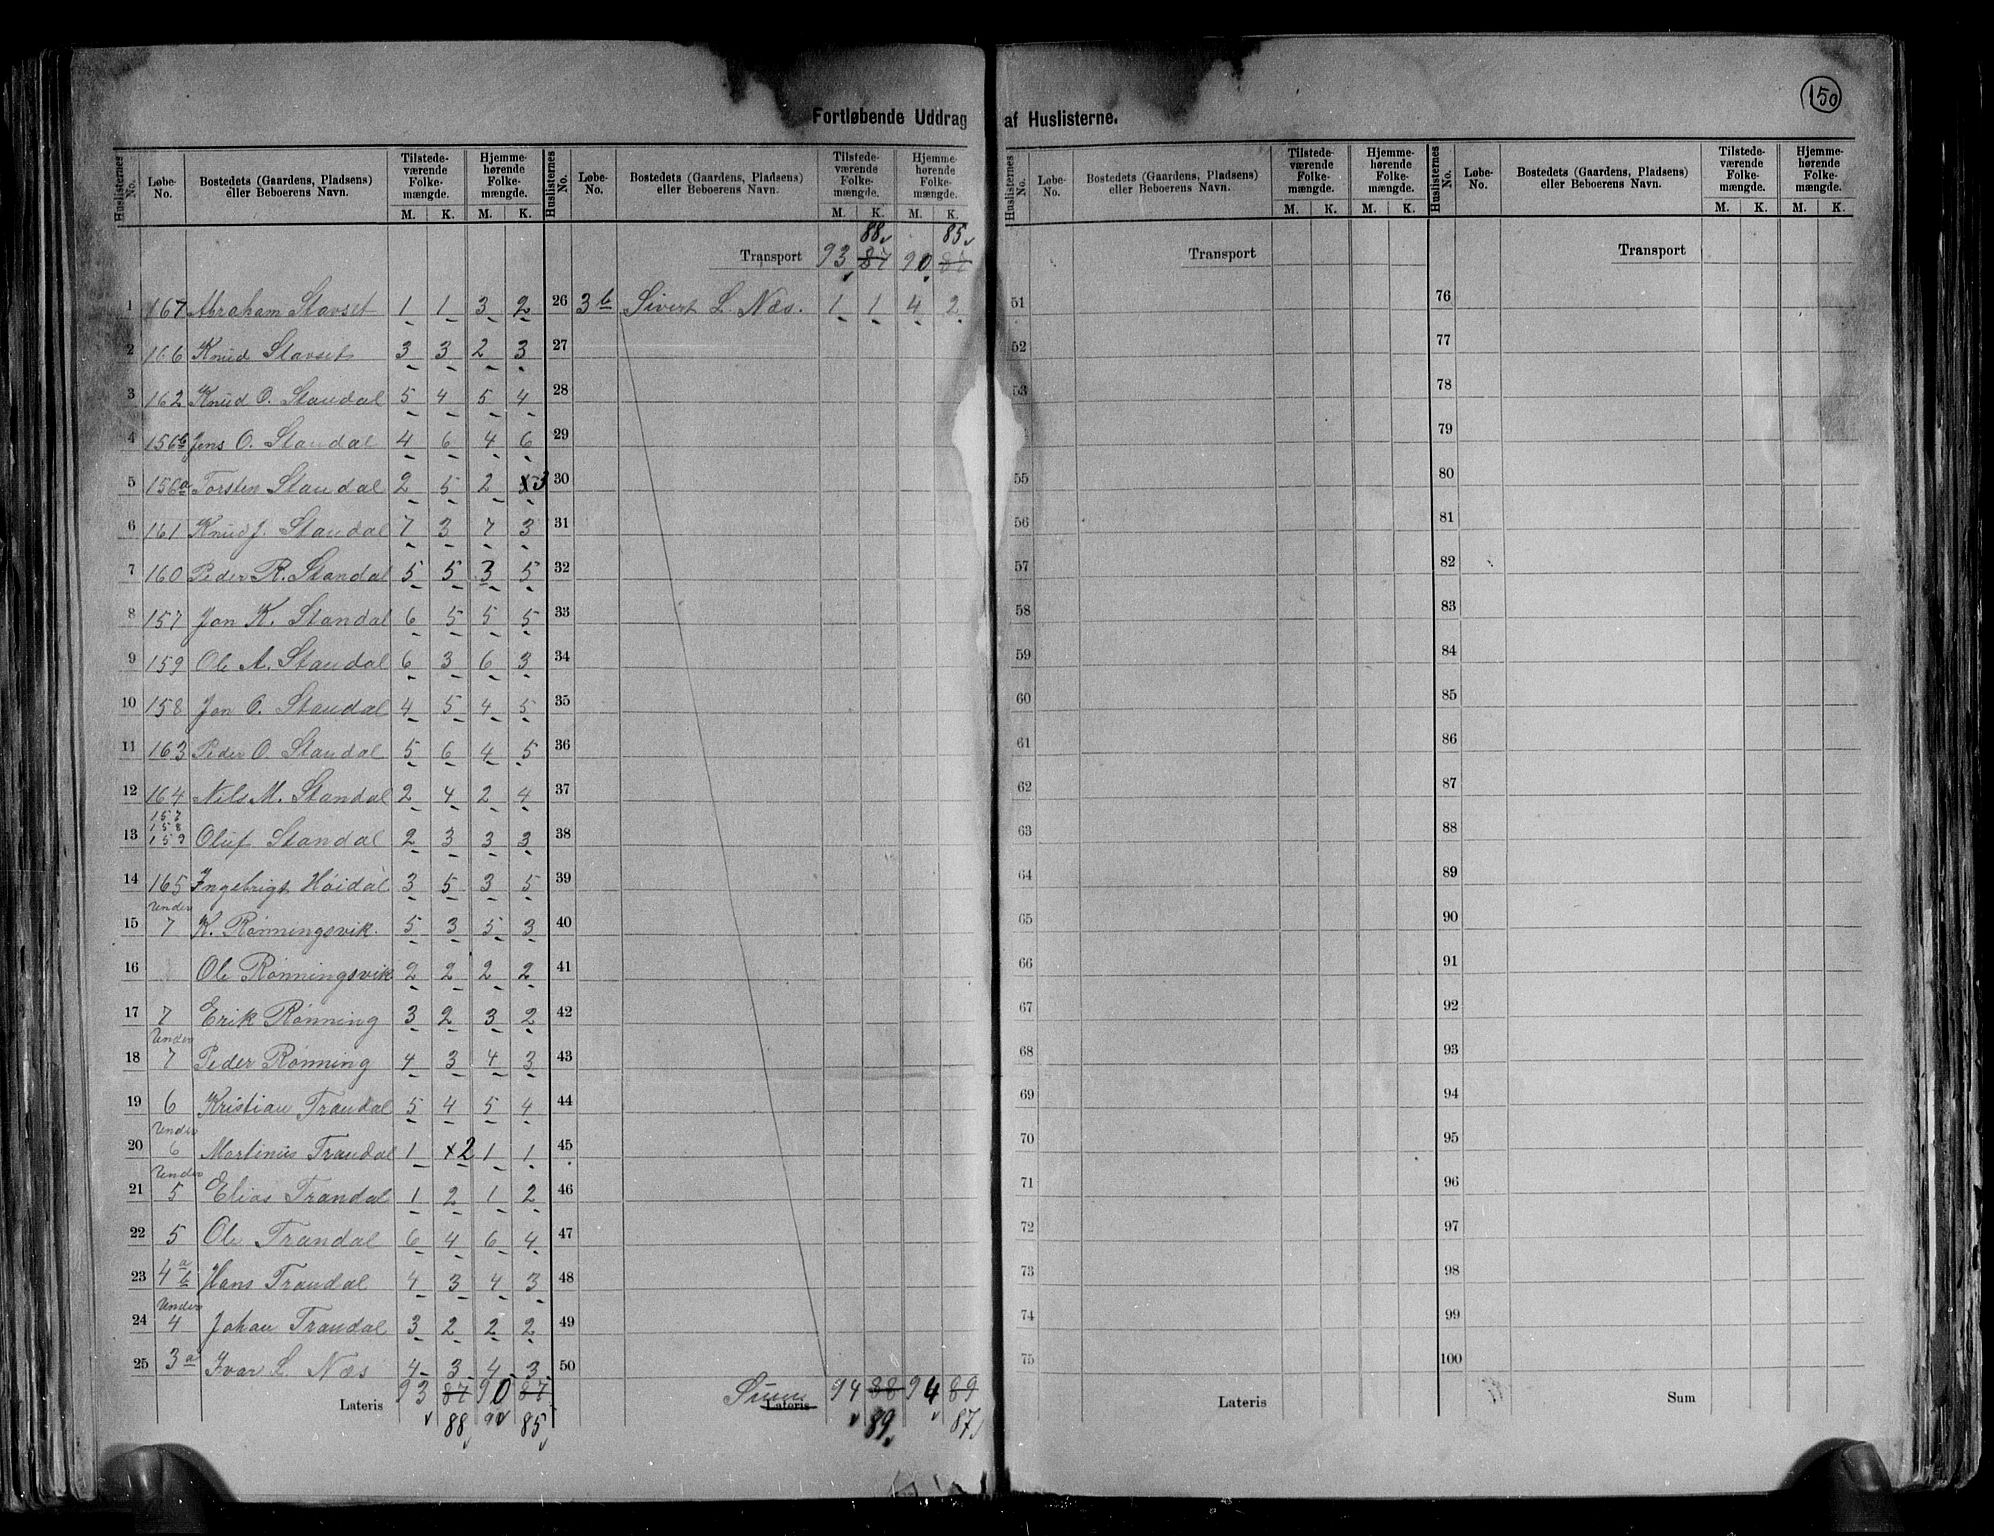 150
Fortløbende Uddrag af Huslisterne.
Huslisternes No. Løbe-No. Bostedets (Gaardens, Pladsens) eller Beboerens Navn. Tilstede-værende Folke-mængde. M. K. Hjemme-hørende Folke-mængde. M. K.
1 167 Abraham Stavset 1 1 3 2
2 166 Knud Stavset 3 3 2 3
3 162 Knud O. Standal 5 4 5 4
4 156b Jens O. Standal 4 6 4 6
5 156a Torsten Standal 2 5 2 x3
6 161 Knud J. Standal 7 3 7 3
7 160 Peder R. Standal 5 5 3 5
8 157 Jon K. Standal 6 5 5 5
9 159 Ole A. Standal 6 3 6 3
10 158 Jon O. Standal 4 5 4 5
11 163 Peder O. Standal 5 6 4 5
12 164 Nils M. Standal 2 4 2 4
13 157 158 159 Oluf Standal 2 3 3 3
14 165 Ingebrigt Høidal 3 5 3 5
15 Under 7 K. Rønningsvik. 5 3 5 3
16 Ole Rønningsvik 2 2 2 2
17 7 Erik Rønning 3 2 3 2
18 Under 7 Peder Rønning 4 3 4 3
19 6 Kristian Trandal 5 4 5 4
20 Under 6 Martinus Trandal 1 x2 1 1
21 Under 5 Elias Trandal 1 2 1 2
22 5 Ole Trandal 6 4 6 4
23 4 a b Hans Trandal 4 3 4 3
24 Under 4 Johan Trandal 3 2 2 2
25 3a Ivar L. Næs 4 3 4 3
Lateris 93 87 90 87
88 90 85
Huslisternes No. Løbe-No. Bostedets (Gaardens, Pladsens) eller Beboerens Navn. Tilstede-værende Folke-mængde. M. K. Hjemme-hørende Folke-mængde. M. K.
88 85
Transport 93 87 90 87
26 3b Sivert L. Næs. 1 1 4 2
27
28
29
30
31
32
33
34
35
36
37
38
39
40
41
42
43
44
45
46
47
48
49
50
Sum Lateris 94 88 94 89
89 87
Huslisternes No. Løbe-No. Bostedets (Gaardens, Pladsens) eller Beboerens Navn. Tilstede-værende Folke-mængde. M. K. Hjemme-hørende Folke-mængde. M. K.
Transport
51
52
53
55
56
57
58
59
60
61
62
63
64
65
66
67
68
69
70
71
72
73
74
75
Lateris
Huslisternes No. Løbe-No. Bostedets (Gaardens, Pladsens) eller Beboerens Navn. Tilstede-værende Folke-mængde. M. K. Hjemme-hørende Folke-mængde. M. K.
Transport
76
77
78
79
80
81
82
83
84
85
86
87
88
89
90
91
92
93
94
95
96
97
98
99
100
Sum